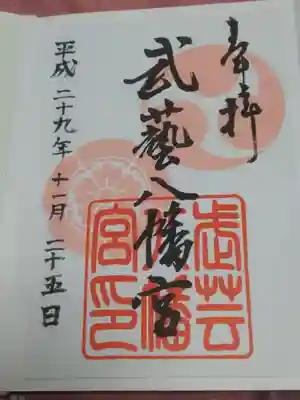 奉拝
武藝八幡宮
武芸八幡宮印
平成二十九年十一月二十五日